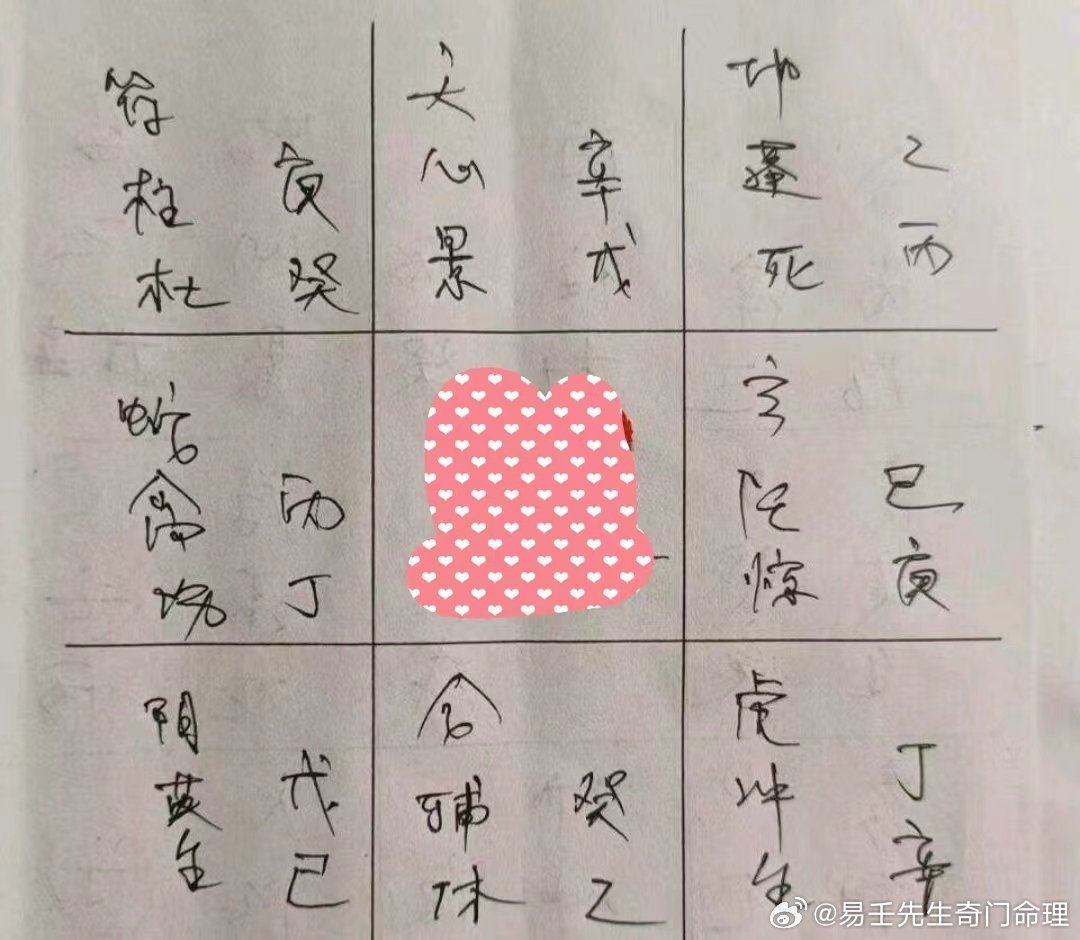 符
柱 庚
杜 癸
天
心 辛
景 戊
地
蓬 乙
死 丙
蛇
禽 丙
伤 丁
玄
任 己
惊 庚
阴
英 戊
生 己
合
辅 癸
休 乙
虎
冲 丁
生 辛
@易壬先生奇门命理